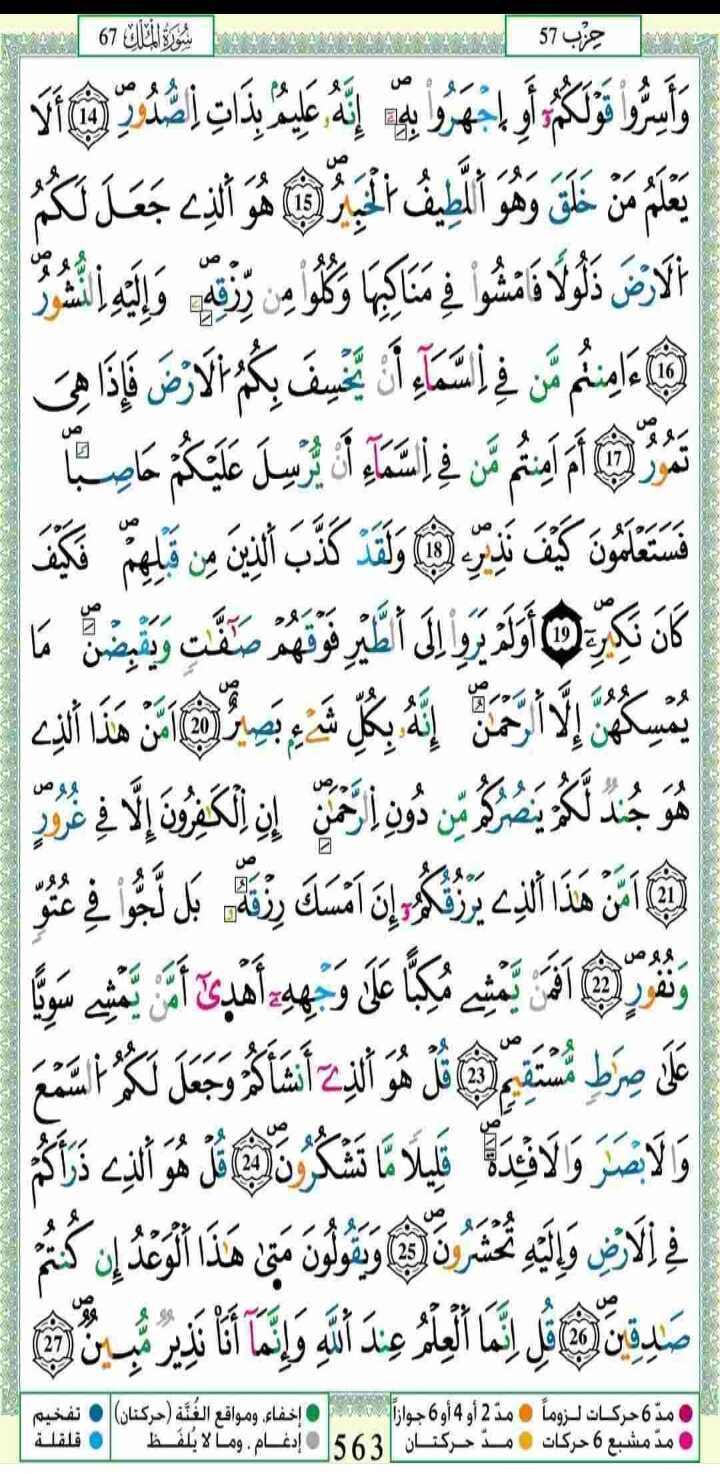 سُورَةُ الْمُلْكِ 67 حِزْب 57
وَأَسِرُّواْ قَوْلَكُمُۥٓ أَوِ اِجْهَرُواْ بِهِۦٓ إِنَّهُۥ عَلِيمُۢ بِذَاتِ اِلصُّدُورِ 14 أَلَا
يَعْلَمُ مَنْ خَلَقَ وَهُوَ اَللَّطِيفُ اُلْخَبِيرُ 15 هُوَ اَلذِے جَعَلَ لَكُمُ
اُلَارْضَ ذَلُولًا فَامْشُواْ فِے مَنَاكِبِهَا وَكُلُواْ مِن رِّزْقِهِۦ وَإِلَيْهِ اِلنُّشُورُ
16 ءَامِنتُم مَّن فِے اِلسَّمَآءِ أَنْ يَّخْسِفَ بِكُمُ اُلَارْضَ فَإِذَا هِىَ
تَمُورُ 17 أَمَ اَمِنتُم مَّن فِے اِلسَّمَآءِ أَنْ يُّرْسِلَ عَلَيْكُمْ حَاصِباً
فَسَتَعْلَمُونَ كَيْفَ نَذِيرِۦ 18 وَلَقَدْ كَذَّبَ اَلذِينَ مِن قَبْلِهِمْ فَكَيْفَ
كَانَ نَكِيرِۦٓ 19 أَوَلَمْ يَرَوِاْ اِلَى اَلطَّيْرِ فَوْقَهُمْ صَٰٓفَّٰتٍ وَيَقْبِضْنَ مَا
يُمْسِكُهُنَّ إِلَّا اَلرَّحْمَٰنُ إِنَّهُۥ بِكُلِّ شَےْءِۢ بَصِيرٌ 20 اَمَّنْ هَٰذَا اَلذِے
هُوَ جُندٌ لَّكُمْ يَنصُرُكُم مِّن دُونِ اِلرَّحْمَٰنِ إِنِ اِلْكَٰفِرُونَ إِلَّا فِے غُرُورٍ
21 اَمَّنْ هَٰذَا اَلذِے يَرْزُقُكُمُۥٓ إِنَ اَمْسَكَ رِزْقَهُۥ بَل لَّجُّواْ فِے عُتُوٍّ
وَنُفُورٍ 22 اَفَمَنْ يَّمْشِے مُكِبًّا عَلَىٰ وَجْهِهِۦٓ أَهْدَىٰٓ أَمَّنْ يَّمْشِے سَوِيًّا
عَلَىٰ صِرَٰطٍ مُّسْتَقِيمٍ 23 قُلْ هُوَ اَلذِےٓ أَنشَأَكُمْ وَجَعَلَ لَكُمُ اُلسَّمْعَ
وَالَابْصَٰرَ وَالَافْـِٕدَةَ قَلِيلًا مَّا تَشْكُرُونَ 24 قُلْ هُوَ اَلذِے ذَرَأَكُمْ
فِے اِلَارْضِ وَإِلَيْهِ تُحْشَرُونَ 25 وَيَقُولُونَ مَتَىٰ هَٰذَا اَلْوَعْدُ إِن كُنتُمْ
صَٰدِقِينَ 26 قُلِ اِنَّمَا اَلْعِلْمُ عِندَ اَللَّهِ وَإِنَّمَآ أَنَا نَذِيرٌ مُّبِينٌ 27
مدّ 6 حركات لـزوماً مدّ 2 أو 4 أو 6 جوازاً إخفاء، ومواقع الغُنَّة (حركتان) تفخيم
مدّ مشبع 6 حركات مـدّ حركتـان إدغـام، ومـا لا يُلفَـظ قلقلة
563